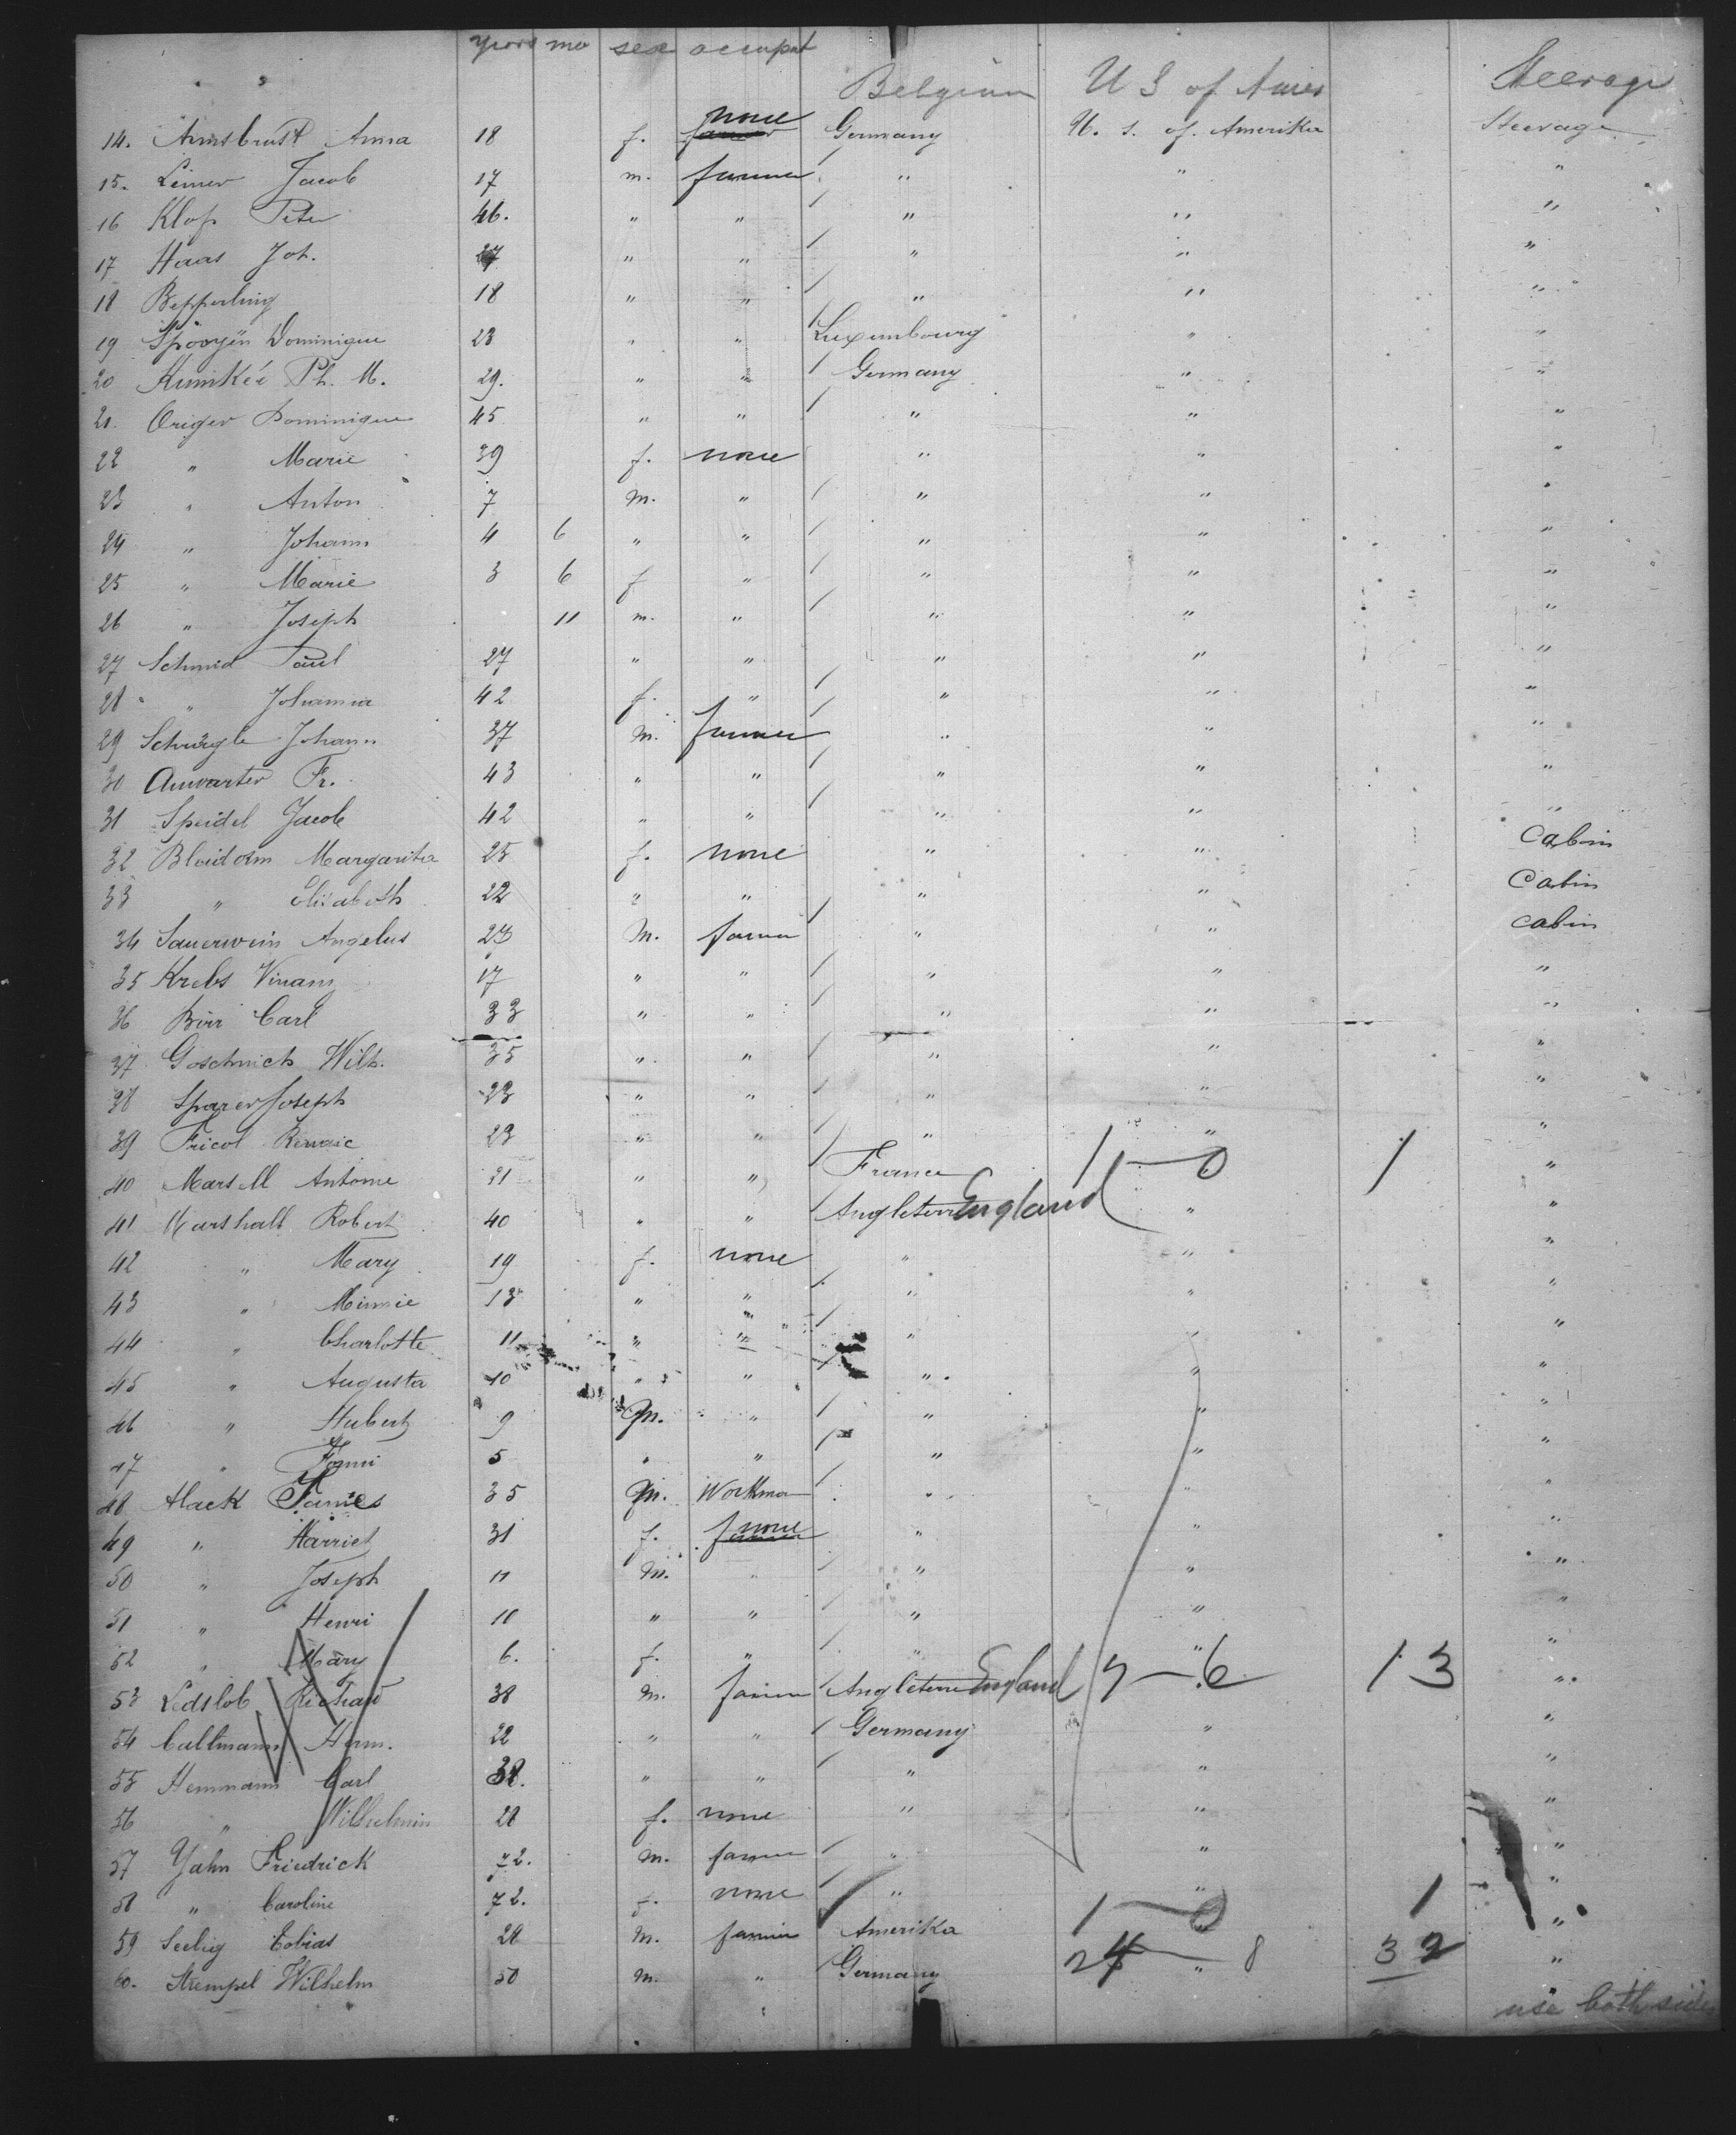 years mo sex occupat
Belgium U S of Amer Steerage
14. Armsbrust Anna 18 f. none farmer Germany U. S. of. Amerika Steerage
15. Leiner Jacob 17 m. farmer " " "
16 Klop Peter 46. " " " " "
17 Haas Joh. 27 " " " " "
18 Bepperling 18 " " " " "
19 Dominique 23 " " Luxembourg " "
20 Ph. M. 29. " " Germany " "
21. Origer Dominique 45 " " " " "
22 " Marie 39 f. none " " "
23 " Anton 7 m. " " " "
24 " Johann 4 6 " " " " "
25 " Marie 3 6 f " " " "
26 " Joseph 11 m. " " " "
27 Schmid Paul 27 " " " " "
28 " Johanna 42 f. " " " "
29 Johann 37 m. farmer " " "
30 Anwarter Fr. 43 " " " " "
31 Speidel Jacob 42 " " " " "
32 Bleidorn Margarita 25 f. none " " Cabin
33 " Elisabeth 22 " " " " Cabin
34 Sauerwein Angelus 23 M. farmer " " cabin
35 Krebs 17 " " " " "
36 Carl 33 " " " " "
37 Goschnick Wilh. 35 " " " " "
38 Sparer Joseph 23 " " " " "
39 Fricol 23 " " " " "
40 Antonie 31 " " France 1 — 0 1 "
41 Marshall Robert 40 " " Angleterre England " "
42 " Mary 19 f. none " " "
43 " Minnie 13 " " " " "
44 " Charlotte 11 " " " " "
45 " Augusta 10 " " " " "
46 " Hubert 9 m. " " " "
47 " 5 " " " " "
48 Alack James 35 m. Workman " " "
49 " Harriet 31 f. none farmer " " "
50 " Joseph 11 m. " " " "
51 " Henri 10 " " " " "
52 " Mary 6. f. " " " "
53 Ledslob Richard 38 m. farmer Angleterre England 7 — 6 13 "
54 Callmann Herm. 22 " " Germany " "
55 Hemmann Carl 38. " " " " "
56 " Wilhelmin 28 f. none " " "
57 Yahn Friedrick 72. m. farmer " " "
58 " Caroline 72. f. none " " "
59 Seelig Tobias 28 m. farmer Amerika 1 — 0 1 "
60. Strempel Wilhelm 50 m. " Germany 24 — 8 32 "
use both sides